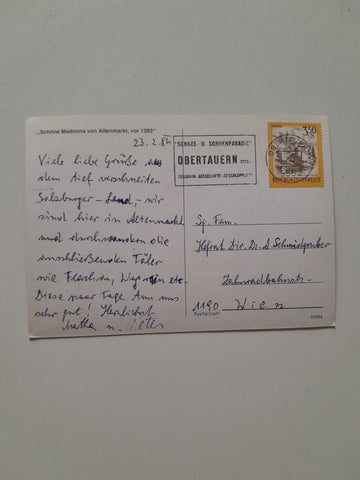 „Schöne Madonna von Altenmarkt, vor 1393"
23.2.84
Viele liebe Grüße aus
dem tief verschneiten
Salzburger-Land, wir
sind hier in Altenmarkt
und durchwandern die
anschließenden Täler
wie Flachau, Wagrain etc.
Diese paar Tage tun uns
sehr gut! Herzlichst
"SCHNEE- U. SONNENPARADIES"
OBERTAUERN
350
REPUBLIK ÖSTERREICH
Sp. Fam.
Hofrat Dir. Dr. A Schmidgruber
Zahnradbahnstr.
1190 Wien
Postleitzahl